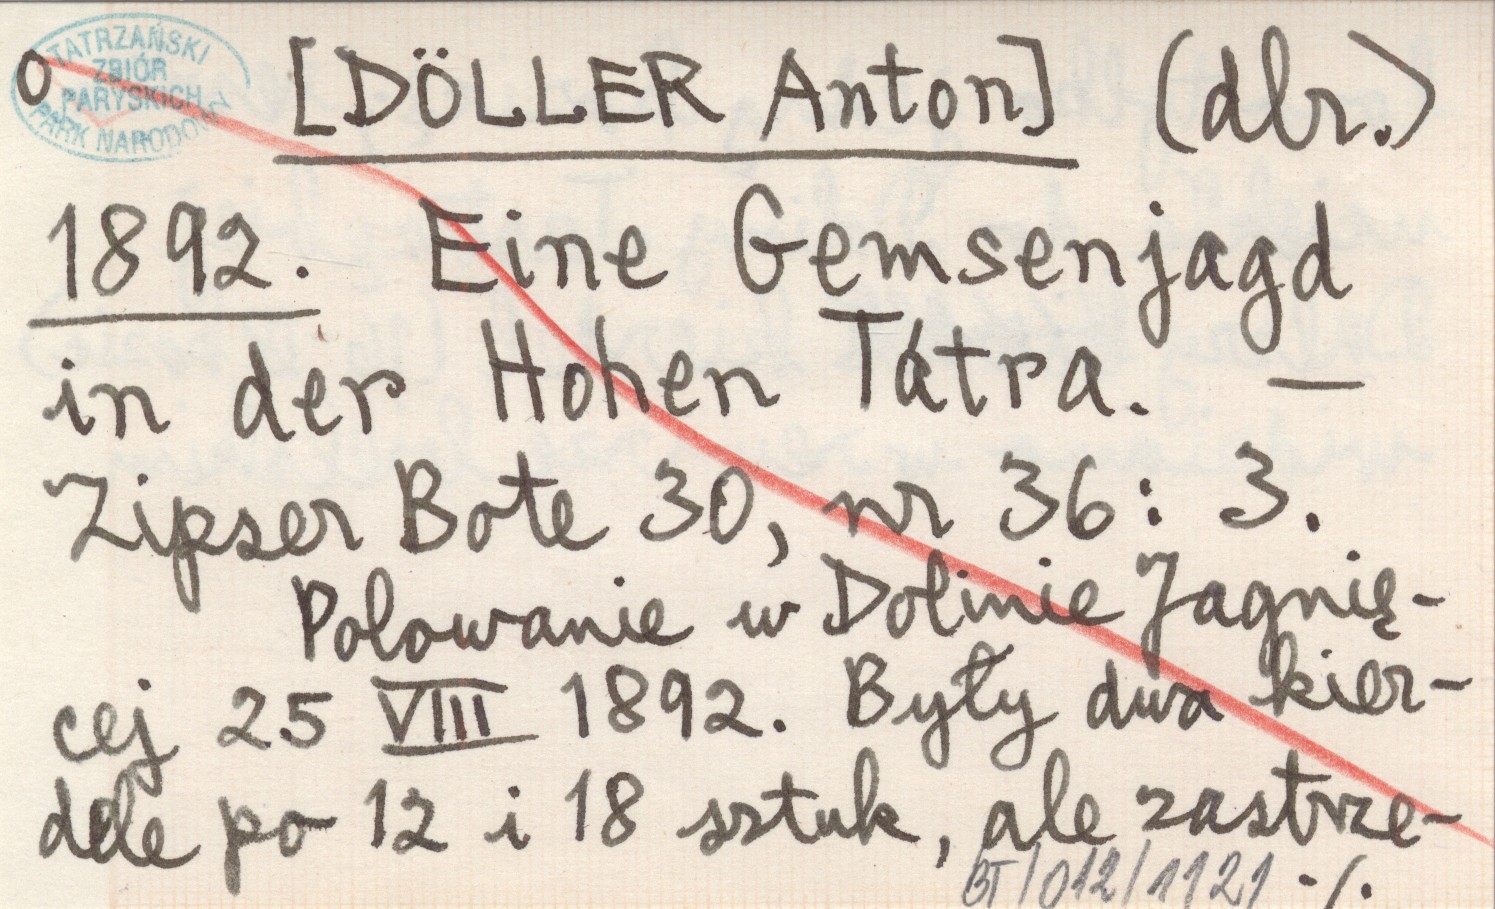 TATRZAŃSKI
ZBIÓR
PARYSKICH
PARK NARODOWY
O [DÖLLER Anton] (dbr.)
1892. Eine Gemsenjagd
in der Hohen Tátra. —
Zipser Bote 30, nr 36: 3.
Polowanie w Dolinie Jagnię-
cej 25 VIII 1892. Były dwa kier-
dele po 12 i 18 sztuk, ale zastrze-
BT/012/1121 -/.